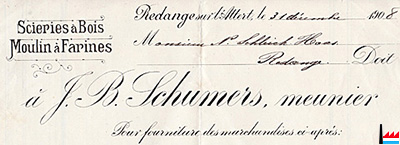 Scieries à Bois
Moulin à Farines
Redange sur l'Attert, le 31 décembre 1908
Monsieur N. Schleich Haas
Redange Doit
à J. B. Schumers, meunier
Pour fourniture des marchandises ci-après: